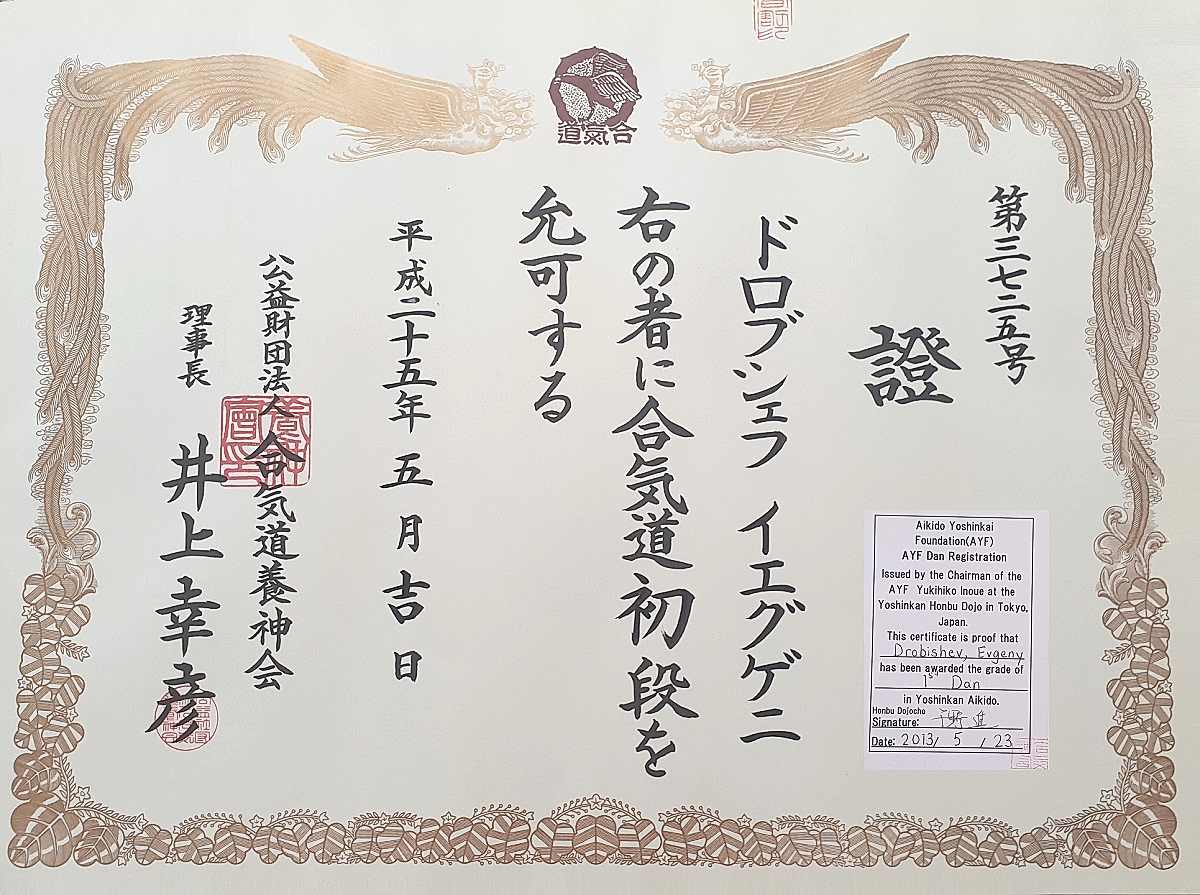 合氣道
第三七二五号
證
ドロブシェフ イエグゲニ
右の者に合気道初段を
允可する
平成二十五年 五月吉日
公益財団法人 合気道養神会
理事長 井上幸彦
Aikido Yoshinkai
Foundation(AYF)
AYF Dan Registration
Issued by the Chairman of the
AYF Yukihiko Inoue at the
Yoshinkan Honbu Dojo in Tokyo,
Japan.
This certificate is proof that
Drobishev, Evgeny
has been awarded the grade of
1st Dan
in Yoshinkan Aikido.
Honbu Dojocho
Signature:
Date: 2013/ 5 / 23